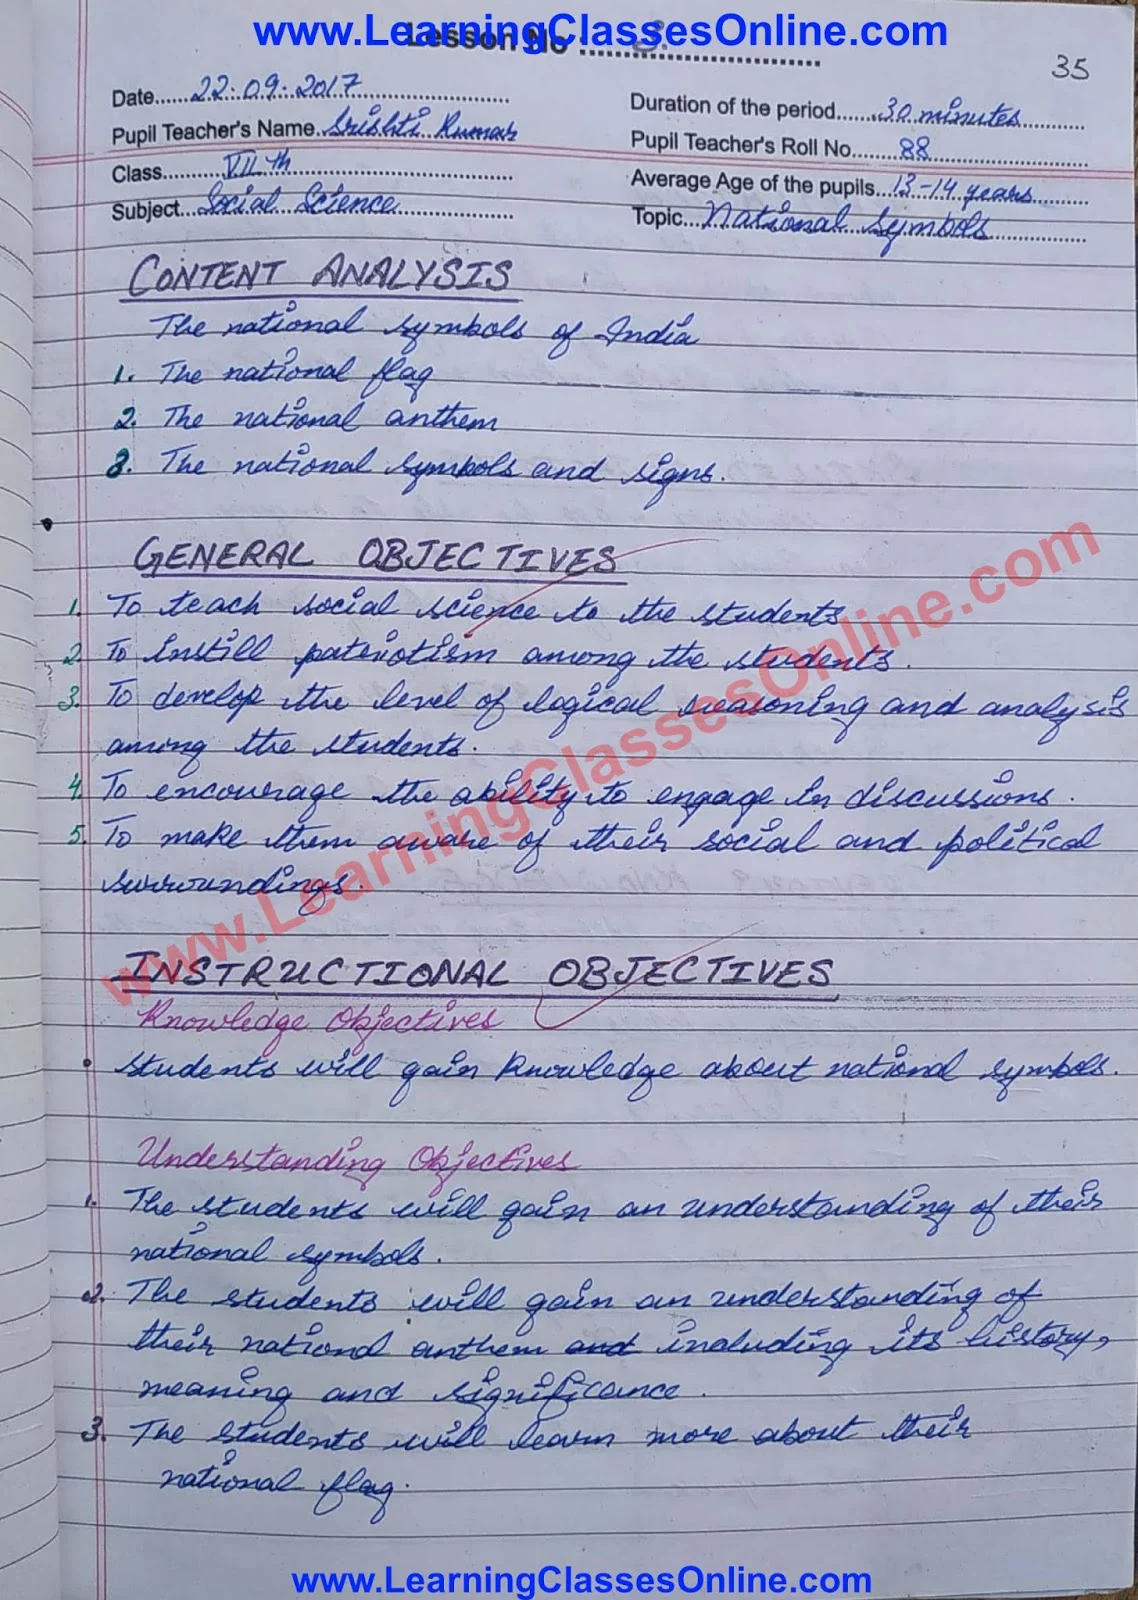 www.LearningClassesOnline.com
Lesson No
35
Date......22.09.2017
Duration of the period.......30 minutes
Pupil Teacher's Name..Srishti Kumar
Pupil Teacher's Roll No.......88
Class.........VIIth
Average Age of the pupils...13-14 years
Subject...Social Science
Topic...National Symbols
CONTENT ANALYSIS
The national symbols of India
1. The national flag
2. The national anthem
3. The national symbols and signs.
GENERAL OBJECTIVES
1. To teach social science to the students
2. To instill pateriotism among the students.
3. To develop the level of logical reasoning and analysis
among the students.
4. To encourage the ability to engage in discussions.
5. To make them aware of their social and political
surroundings.
www.LearningClassesOnline.com
INSTRUCTIONAL OBJECTIVES
Knowledge Objectives
• Students will gain knowledge about national symbols.
Understanding Objectives
1. The students will gain an understanding of their
national symbols.
2. The students will gain an understanding of
their national anthem and including its history,
meaning and significance.
3. The students will learn more about their
national flag.
www.LearningClassesOnline.com